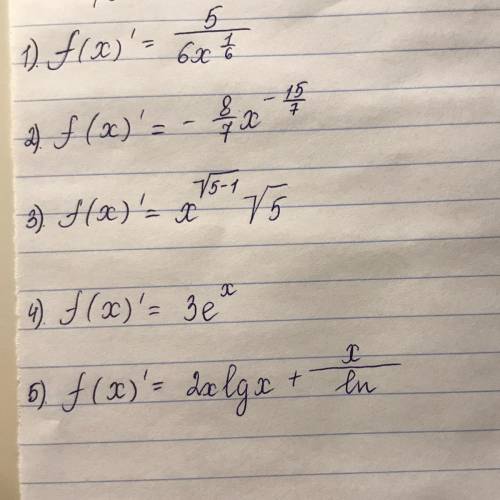 1). f(x)' = 5/(6x^(1/6))
2). f(x)' = - 8/7 x^(-15/7)
3). f(x)' = x^(√(5-1)) √5
4). f(x)' = 3e^x
5). f(x)' = 2x lg x + x/ln